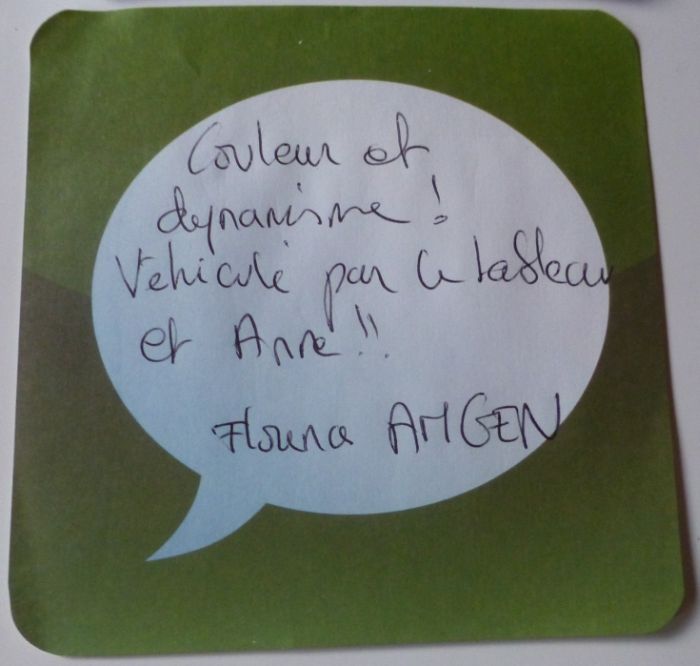 Couleur et
dynamisme !
Vehiculé par le tableau
et Anne !!
Florence AMGEN